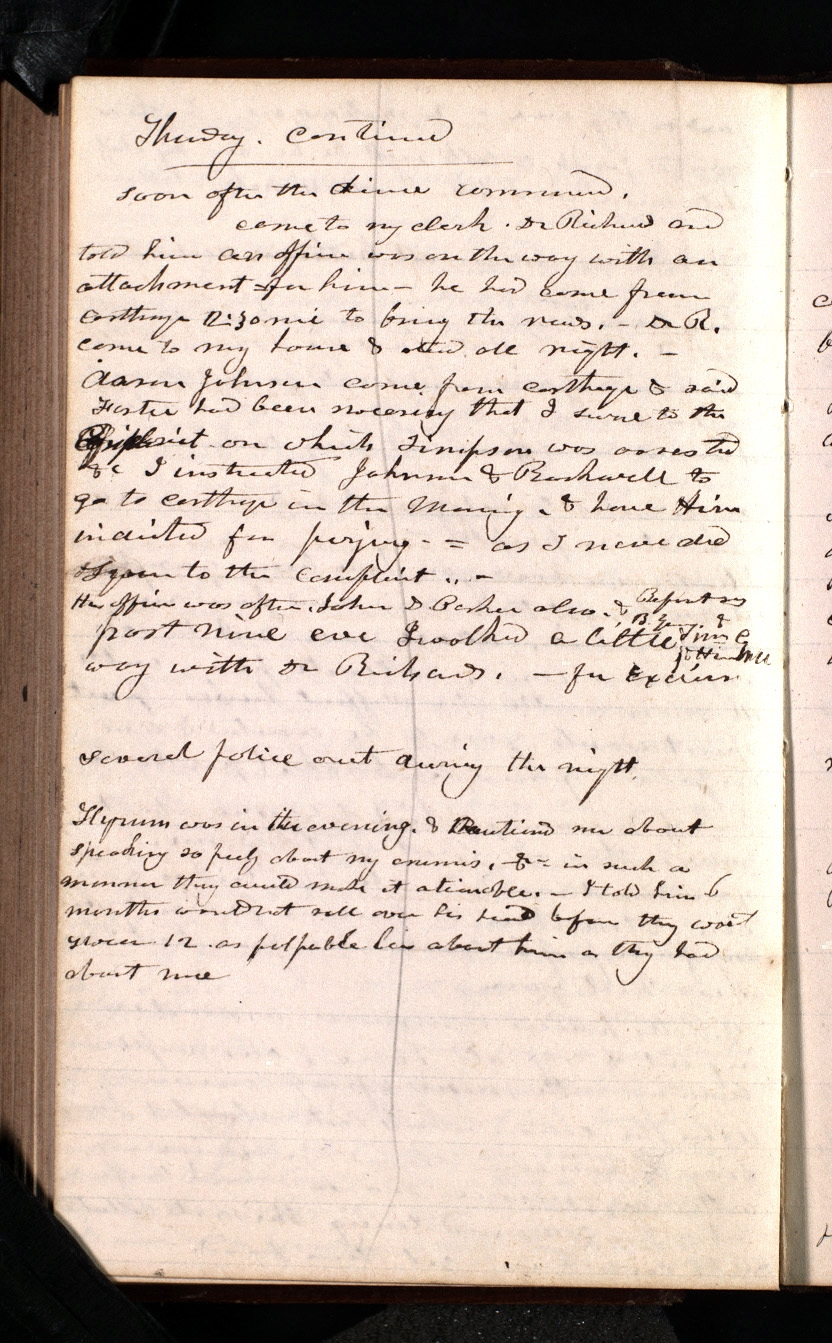 Thursday. continued
soon after the dinner
came to my clerk. Dr Richards and
told him an officer was on the way with an
attachment for him — he had come from
carthage to bring the news. — Dr R.
came to my house & staid all night. —
Aaron Johnson came from carthage & said
Foster had been swearing that I swore to the
complaint on which Simpson was arrested
&c I instructed Johnson & Backwell to
go to carthage in the Morning. & have Him
indicted for perjury - = as I never did
to the complaint.. —
The officer was after John D Parker also. &
past nine eve I walked a little
way with Dr Richards. — for Exercise
several police out during the night.
Hyrum was in the evening. & Cautiond me about
speaking so freely about my enemis. &c = in such a
manner they could make it actionable. — I told him 6
months would not roll over his head before they would
swear 12. as palpable lies about him as they had
about me